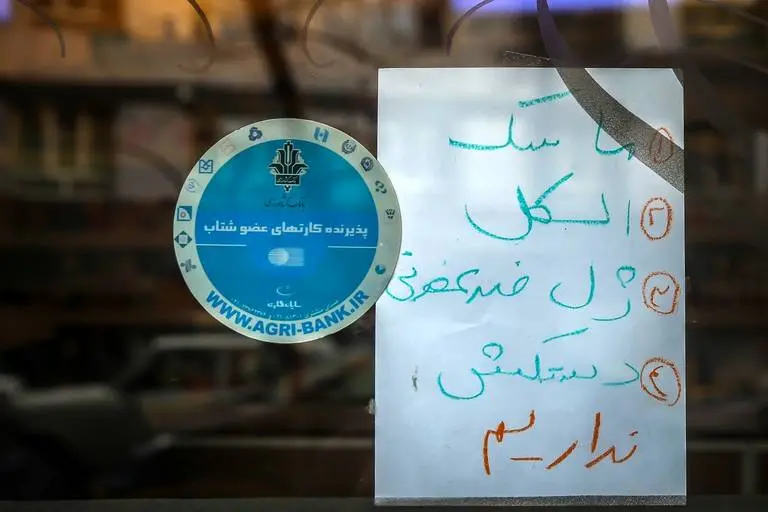 بانک کشاورزی
پذیرنده کارتهای عضو شتاب
WWW.AGRI-BANK.IR
① ماسک
② الکل
③ ژل ضدعفونی
④ دستکش
نداریم